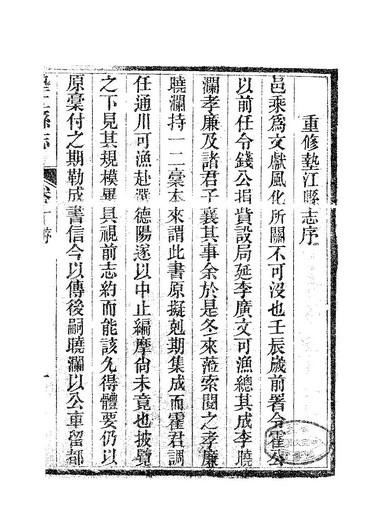 重修墊江縣志序
邑乘為文獻風化所關不可沒也壬辰歲前署令霍公
以前任令錢公捐貲設局延李廣文可漁總其成李曉
瀾孝廉及諸君子襄其事余於是冬來蒞索閱之孝廉
曉瀾持一二藁本來謂此書原擬剋期集成而霍君調
任通川可漁赴選德陽遂以中止編摩尙未竟也披覽
之下見其規模畢具視前志約而能該允得體要仍以
原藁付之期勒成書信今以傳後嗣曉瀾以公車留都
墊江縣志
卷 序
一